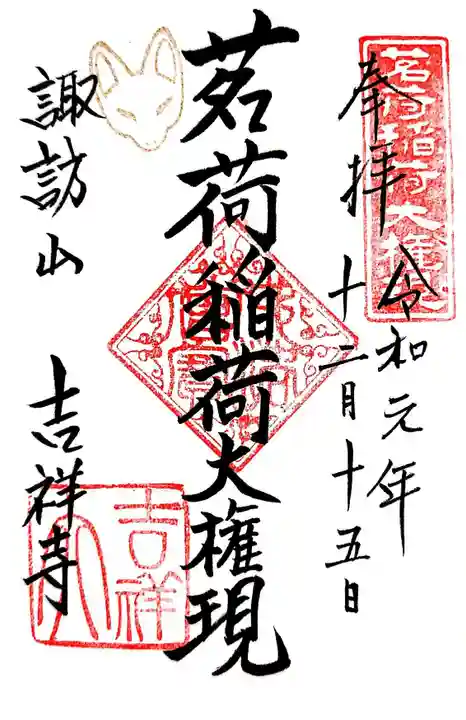 奉拝
令和元年
十二月十五日
茗荷稲荷大権現
諏訪山 吉祥寺
茗荷稲荷大権現
吉祥